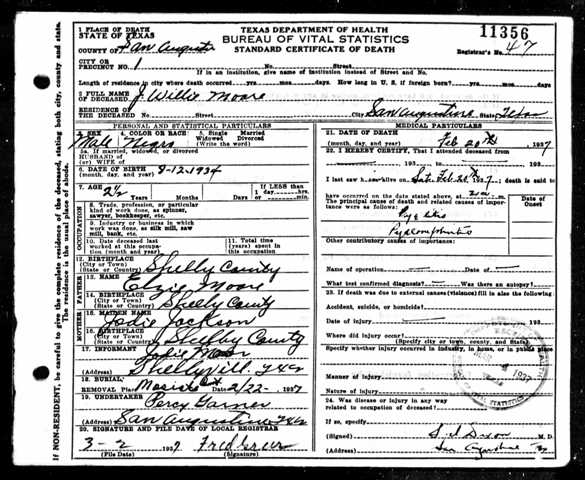 TEXAS DEPARTMENT OF HEALTH
BUREAU OF VITAL STATISTICS
STANDARD CERTIFICATE OF DEATH
11356
Registrar's No. 47
1 PLACE OF DEATH
STATE OF TEXAS
COUNTY OF San Augustine
CITY OR
PRECINCT NO. 1 No. Street
If in an institution, give name of institution instead of Street and No.
Length of residence in city where death occurred yrs mos days How long in U. S. if foreign born? yrs mos days
2 FULL NAME
OF DECEASED J. Willie Moore
RESIDENCE OF
THE DECEASED No. Street City San Augustine State Texas
PERSONAL AND STATISTICAL PARTICULARS
3. SEX 4. COLOR OR RACE 5. Single Married
Widowed Divorced
(Write the word)
Male Negro
5a. If married, widowed, or divorced
HUSBAND of
(or) WIFE of
6. DATE OF BIRTH
(month, day, year) 8-12-1934
7. AGE 2½
Years Months Days
If LESS than
1 day, hrs
or min.
OCCUPATION
8. Trade, profession, or particular
kind of work done, as spinner,
sawyer, bookkeeper, etc.
9. Industry or business in which
work was done, as silk mill, saw
mill, bank, etc.
10. Date deceased last
worked at this occupa-
tion (month and year)
11. Total time (years)
spent in this
occupation
12. BIRTHPLACE
(City or Town)
(State or Country) Shelby County
FATHER
13. NAME Elzie Moore
14. BIRTHPLACE
(City or Town)
(State or Country) Shelby County
MOTHER
15. MAIDEN NAME
Jodie Jackson
16. BIRTHPLACE
(City or Town)
(State or Country) Shelby County
17. INFORMANT Jodie Moore
(Address) Shelbyvill. Tex
18. BURIAL,
REMOVAL Place Date 2/22-1937
19. UNDERTAKER Percy Garner
(Address) San Augustine Tex
20. SIGNATURE AND FILE DATE OF LOCAL REGISTRAR
3-2 1937 Fred Greer
(File Date) (Signature)
MEDICAL PARTICULARS
21. DATE OF DEATH
(month, day, year) Feb 20th 1937
22. I HEREBY CERTIFY, That I attended deceased from
193 , to 193
I last saw h alive on Sat. Feb. 20 1937, death is said to
have occurred on the date stated above, at
The principal cause of death and related causes of impor-
tance were as follows:
Date of
Onset
Pyelitis
Pyelonephritis
Other contributory causes of importance:
Name of operation Date of
What test confirmed diagnosis? Was there an autopsy?
23. If death was due to external causes (violence) fill in also the following:
Accident, suicide, or homicide?
Date of injury 193
Where did injury occur?
(Specify city or town, county, and State)
Specify whether injury occurred in industry, in home, or in public place
Manner of injury
Nature of injury
24. Was disease or injury in any way
related to occupation of deceased?
If so, specify
(Signed) M. D.
(Address) San Augustine Tex
1937
NON-RESIDENT, be careful to give the complete residence of the deceased, stating both city, county and state.
The residence is the usual place of abode.